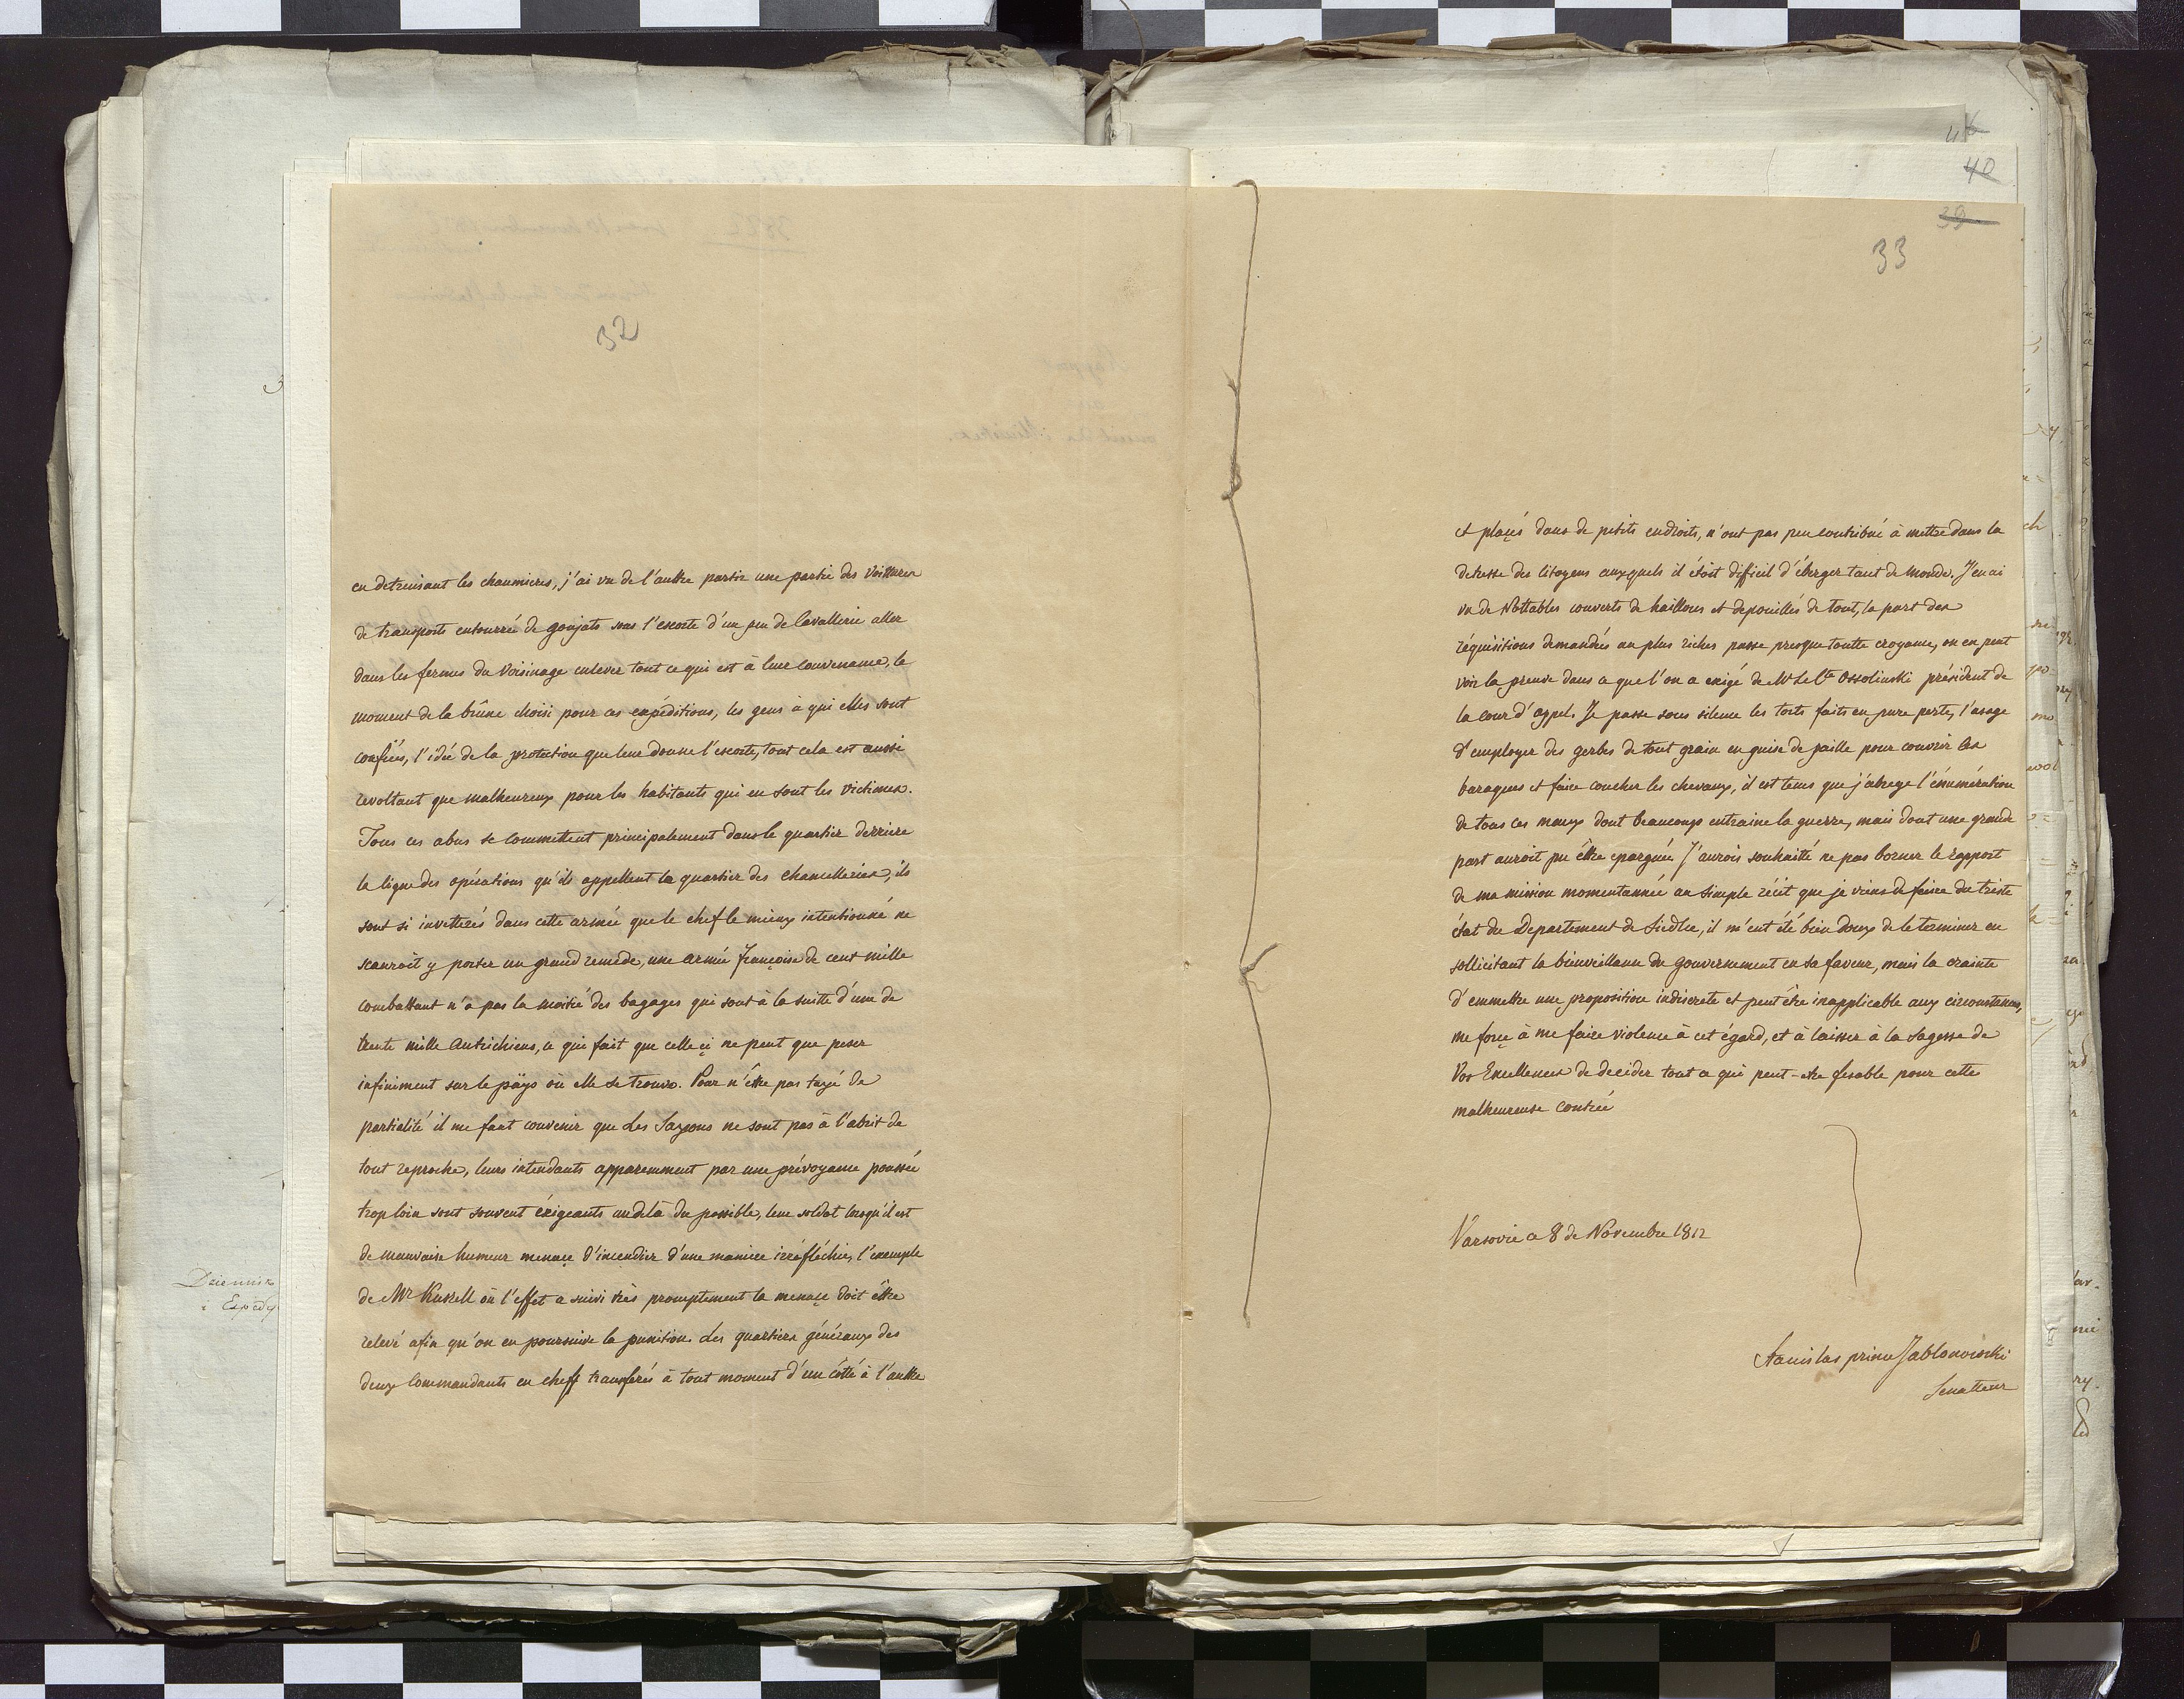 32
en detruisant les chaumieres, j'ai vu de l'autre partie une partie des Voitures
de transports entourré de goujats sous l'escorte d'un peu de Cavallerie aller
dans les fermes du Voisinage enlever tout ce qui est à leur convenance, le
moment de la brûne choisi pour ces expéditions, les gens à qui elles sont
confiées, l'idée de la protection que leur donne l'escorte, tout cela est aussi
revoltant que malheureux pour les habitants qui en sont les victimes.
Tous ces abus se commettent principalement dans le quartier derriere
la ligne des opérations qu'ils appellent le quartier des Chancelleries, ils
sont si invetterés dans cette armée que le chef le mieux intentionné ne
scauroit y porter un grand remede, une armée françoise de cent mille
combattant n'a pas la moitié des bagages qui sont à la suite d'une de
trente mille Autrichiens, ce qui fait que celle çi ne peut que peser
infiniment sur le päys où elle se trouve. Pour n'être pas taxé de
partialité il me faut convenir que Les Saxons ne sont pas à l'abrit de
tout reproche, leurs intendants apparemment par une prévoyance poussée
trop loin sont souvent éxigeants audelà du possible, leur soldat lorsqu'il est
de mauvaise humeur menaçe d'incendier d'une maniere irréfléchie, l'exemple
de Mr Kukell où l'effet a suivi très promptement la menaçe doit être
relevé afin qu'on en poursuive la punition. Les quartiers généraux des
deux Commandants en cheff transferés à tout moment d'un côtté à l'autre
40
39
33
et plaçés dans de petits endroits, n'ont pas peu contribué à mettre dans la
detresse des Citoyens auxquels il étoit difficil d'éberger tant de Monde. J'en ai
vu de Nottables couverts de haillons et depouillés de tout, la part des
réquisitions demandées au plus riches passe presque toutte croyance, on en peut
voir la preuve dans ce que l'on a exigé de Mr Le Cte Ossolinski président de
la Cour d'appel. Je passe sous silence les torts faits en pure perte, l'usage
d'employer des gerbes de tout grain en guise de paille pour couvrir les
baraques et faire coucher les chevaux, il est tems que j'abrege l'énumération
de tous ces maux dont beaucoup entraine la guerre, mais dont une grande
part auroit pu être epargnée J'aurois souhaité ne pas borner le rapport
de ma mission momentannée au simple récit que je viens de faire du triste
état du Departement de Siedlce, il m'eut été bien doux de le terminer en
sollicitant la bienveillance du Gouvernement en sa faveur, mais la crainte
d'emmettre une proposition indiscrete et peut être inapplicable aux circonstances,
me force à me faire violence à cet égard, et à laisser à la Sagesse de
Vos Excellences de decider tout ce qui peut-etre fesable pour cette
malheureuse contrée
Varsovie ce 8 de Novembre 1812
Stanislas prince Jablonowski
Senatteur